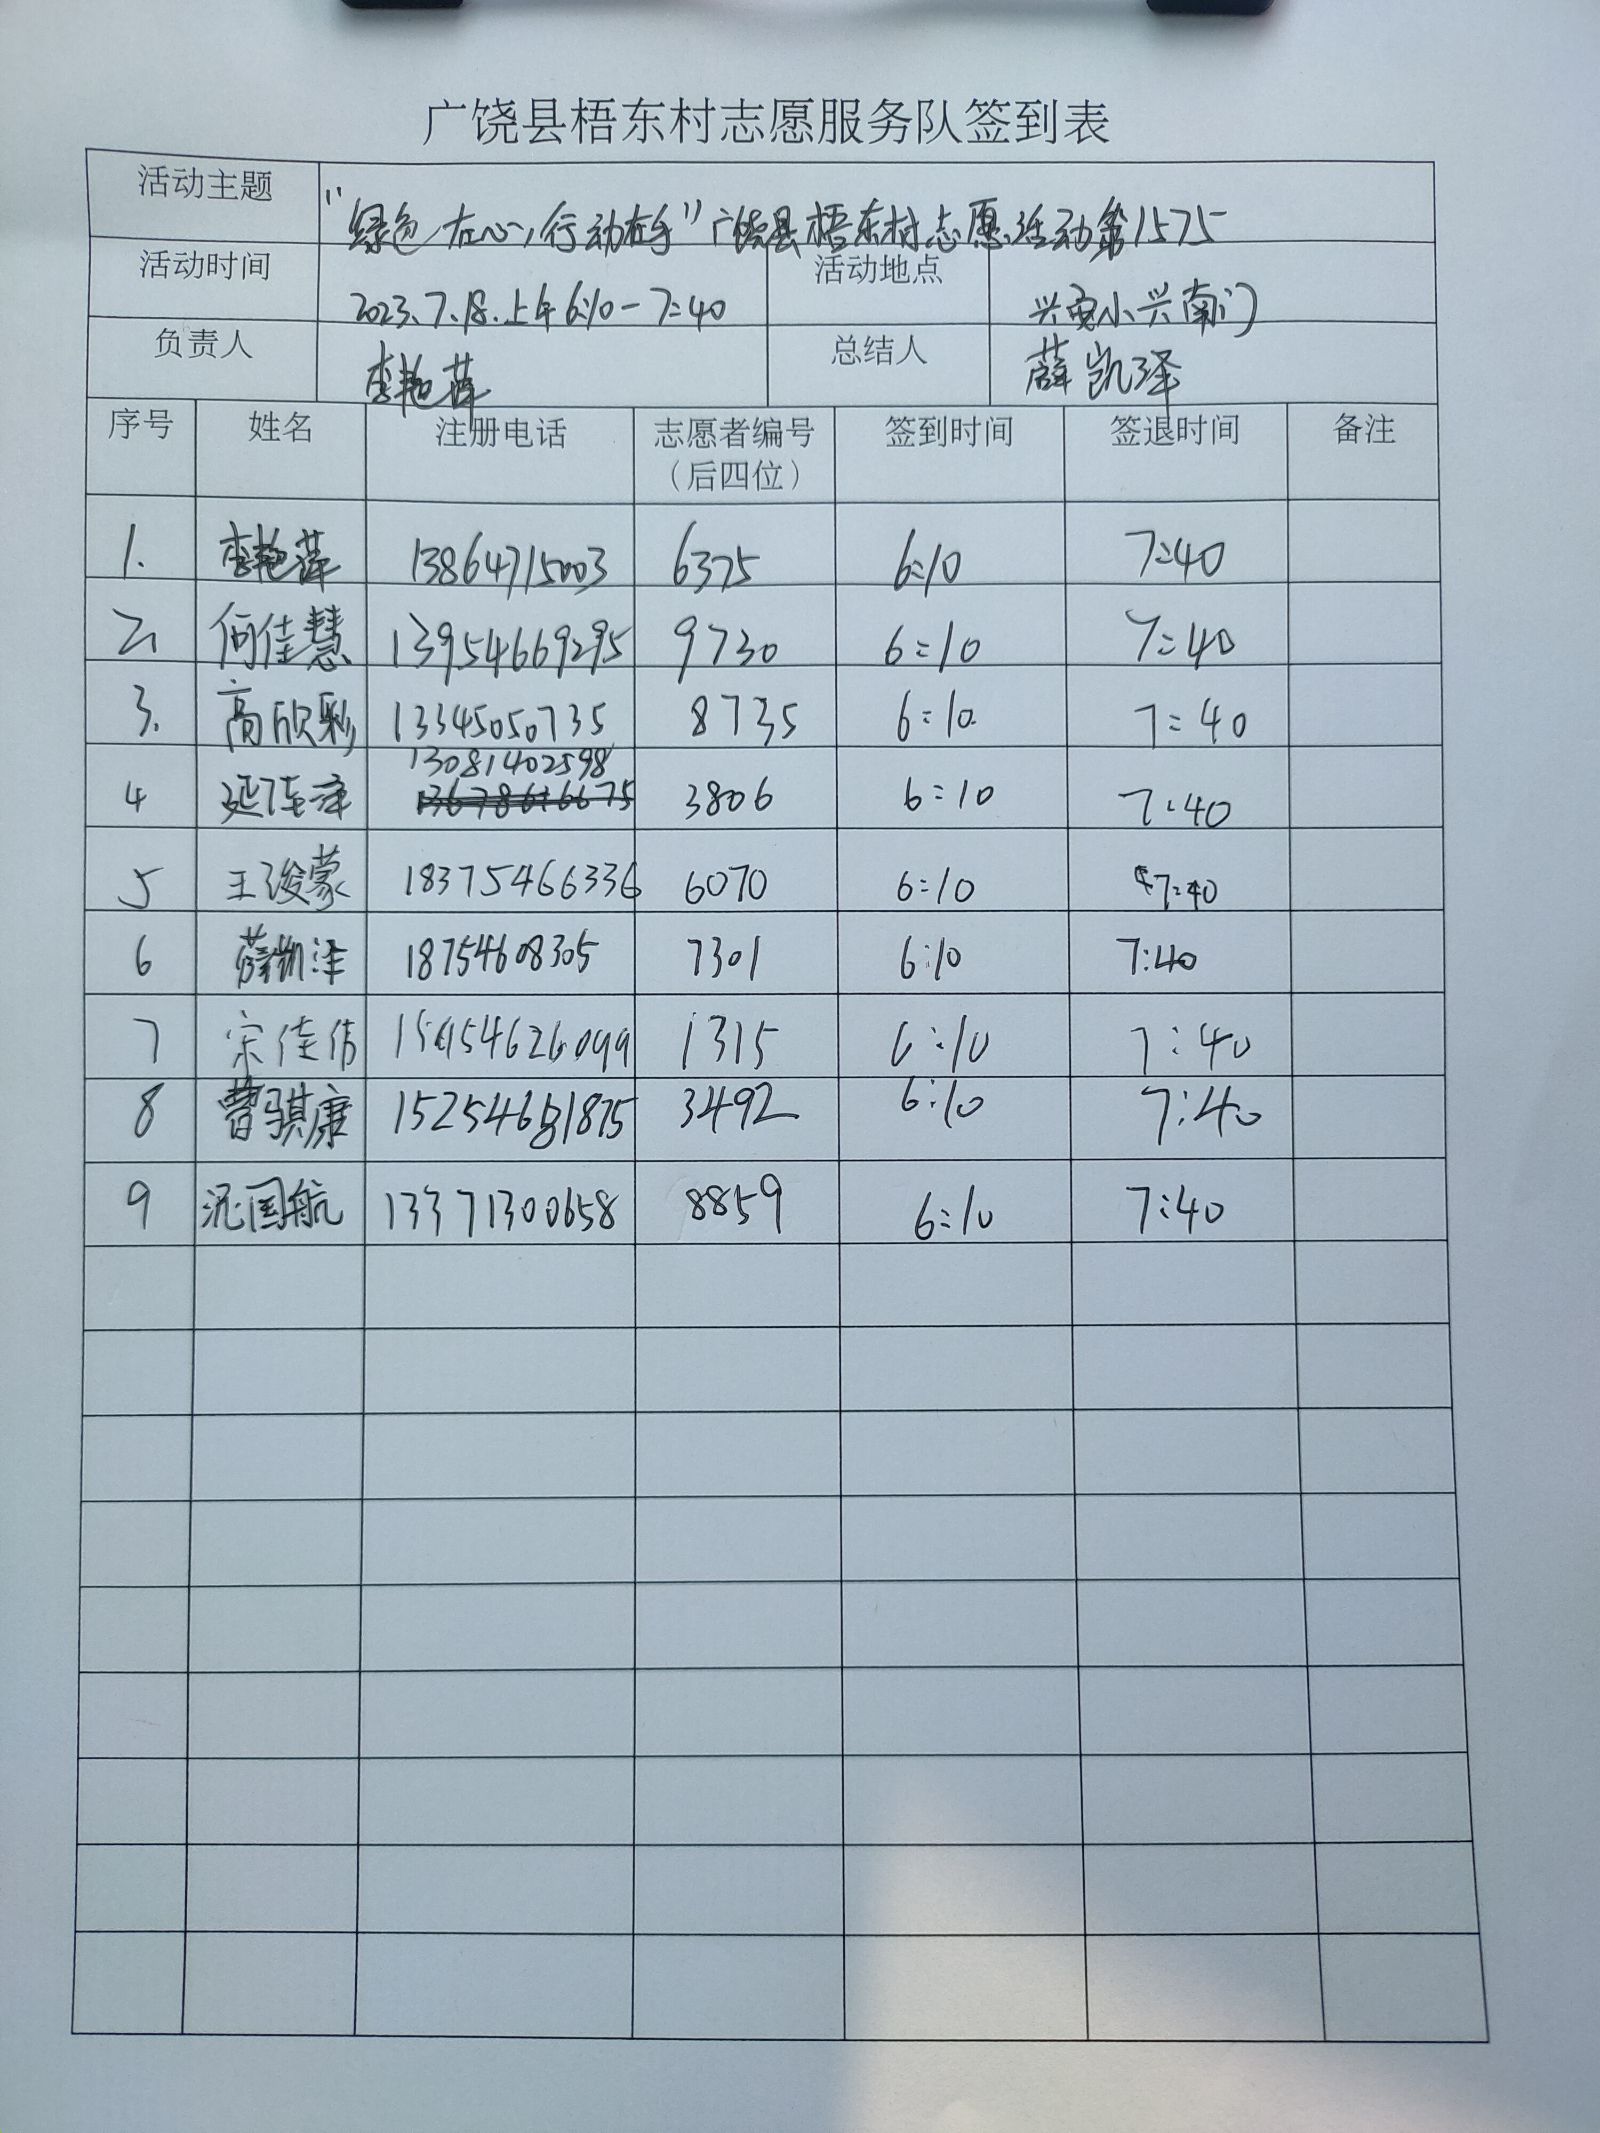 广饶县梧东村志愿服务队签到表
活动主题 "绿色在心,行动在手"广饶县梧东村志愿活动第1575
活动时间 2023.7.18.上午6:10-7:40 活动地点 兴安小兴南门
负责人 李艳萍 总结人 薛凯泽
序号 姓名 注册电话 志愿者编号 签到时间 签退时间 备注
(后四位)
1. 李艳萍 13864715003 6375 6:10 7:40
2. 何佳慧 13954669295 9730 6:10 7:40
3. 高欣彩 13345050735 8735 6:10 7:40
13081402598
4 3806 6:10 7:40
5 王浚蒙 18375466336 6070 6:10 7:40
6 薛凯泽 18754608305 7301 6:10 7:40
7 宋佳伟 1315 6:10 7:40
8 曹骐康 3492 6:10 7:40
9 国航 13371300658 8859 6:10 7:40